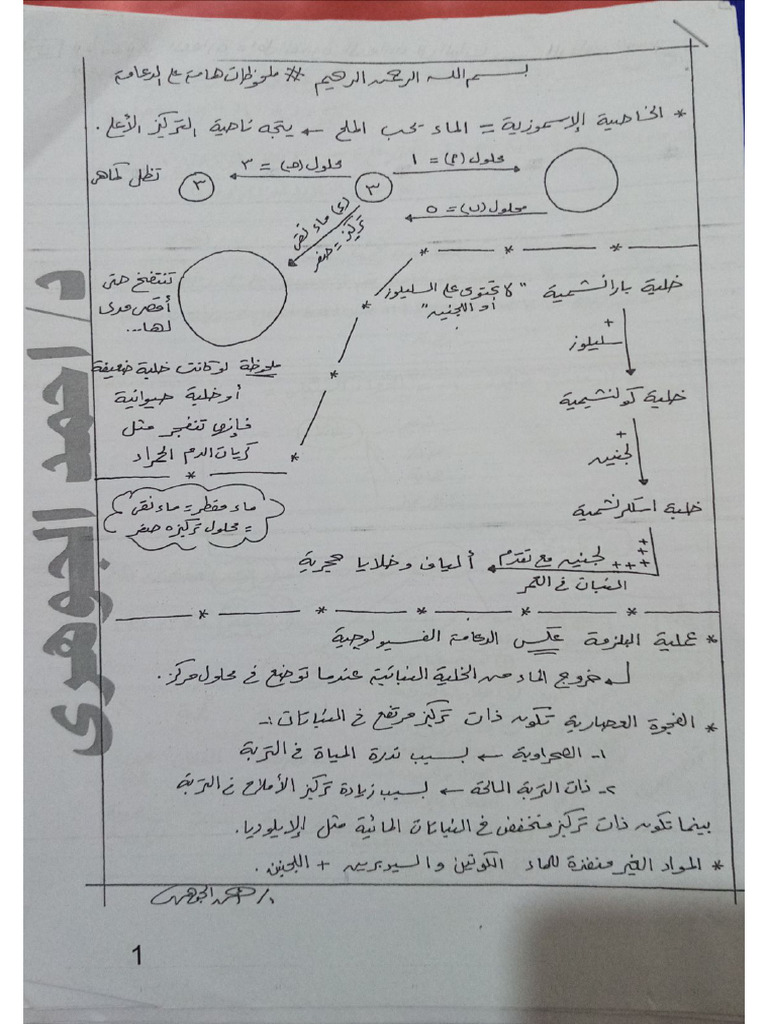 بسم الله الرحمن الرحيم # ملحوظات هامة على الدعامة
* الخاصية الإسموزية = الماء يحب الملح ← يتجه ناصية التركيز الأعلى .
محلول (أ) = ١
محلول (جـ) = ٣
٣
٣
تظل كماهى
محلول (ب) = ٥
(ء) ماء نقى
تركيزه = صفر
تنتفخ حتى
أقصى مدى
لها...
ملحوظة لو كانت خلية ضعيفة
أو خلية حيوانية
فإنها تنفجر مثل
كريات الدم الحمراء
ماء مقطر = ماء نقى
= محلول تركيزه صفر
خلية بارانشيمية "لا تحتوى على السليلوز
أو اللجنين"
+
سليلوز
خلية كولنشيمية
+
لجنين
خلية اسكلرنشيمية
+ + + + +
لجنين مع تقدم
النبات فى العمر
ألياف وخلايا حجرية
* عملية البلزمة عكس الدعامة الفسيولوجية
خروج الماء من الخلية النباتية عندما توضع فى محلول مركز .
* الفجوة العصارية تكون ذات تركيز مرتفع فى النباتات :-
١- الصحراوية ← بسبب ندرة المياة فى التربة
٢- ذات التربة المالحة ← بسبب زيادة تركيز الأملاح فى التربة
بينما تكون ذات تركيز منخفض فى النباتات المائية مثل الإيلوديا .
* المواد الغير منفذة للماء الكوتين والسيوبرين + اللجنين .
د/ أحمد الجوهرى
د/ احمد الجوهرى
1